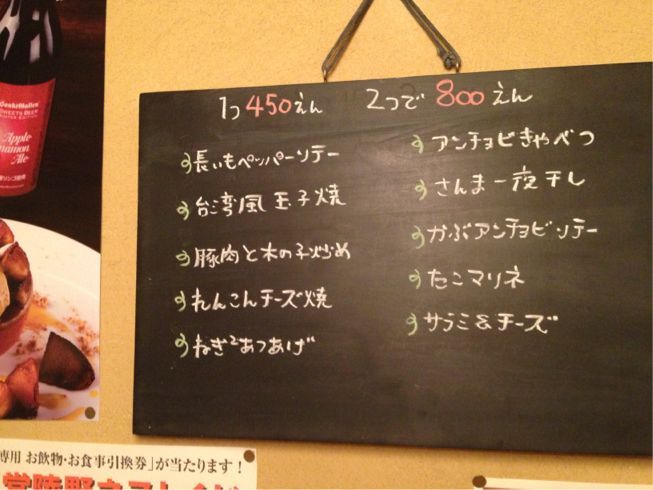 1つ450えん 2つで800えん
長いもペッパーソテー
台湾風玉子焼
豚肉と木の子炒め
れんこんチーズ焼
ねぎ²あつあげ
アンチョビきゃべつ
さんま一夜干し
かぶアンチョビソテー
たこマリネ
サラミ&チーズ
SWEETS BEER
Apple
Cinnamon
Ale
専用 お飲物・お食事引換券」が当たります!